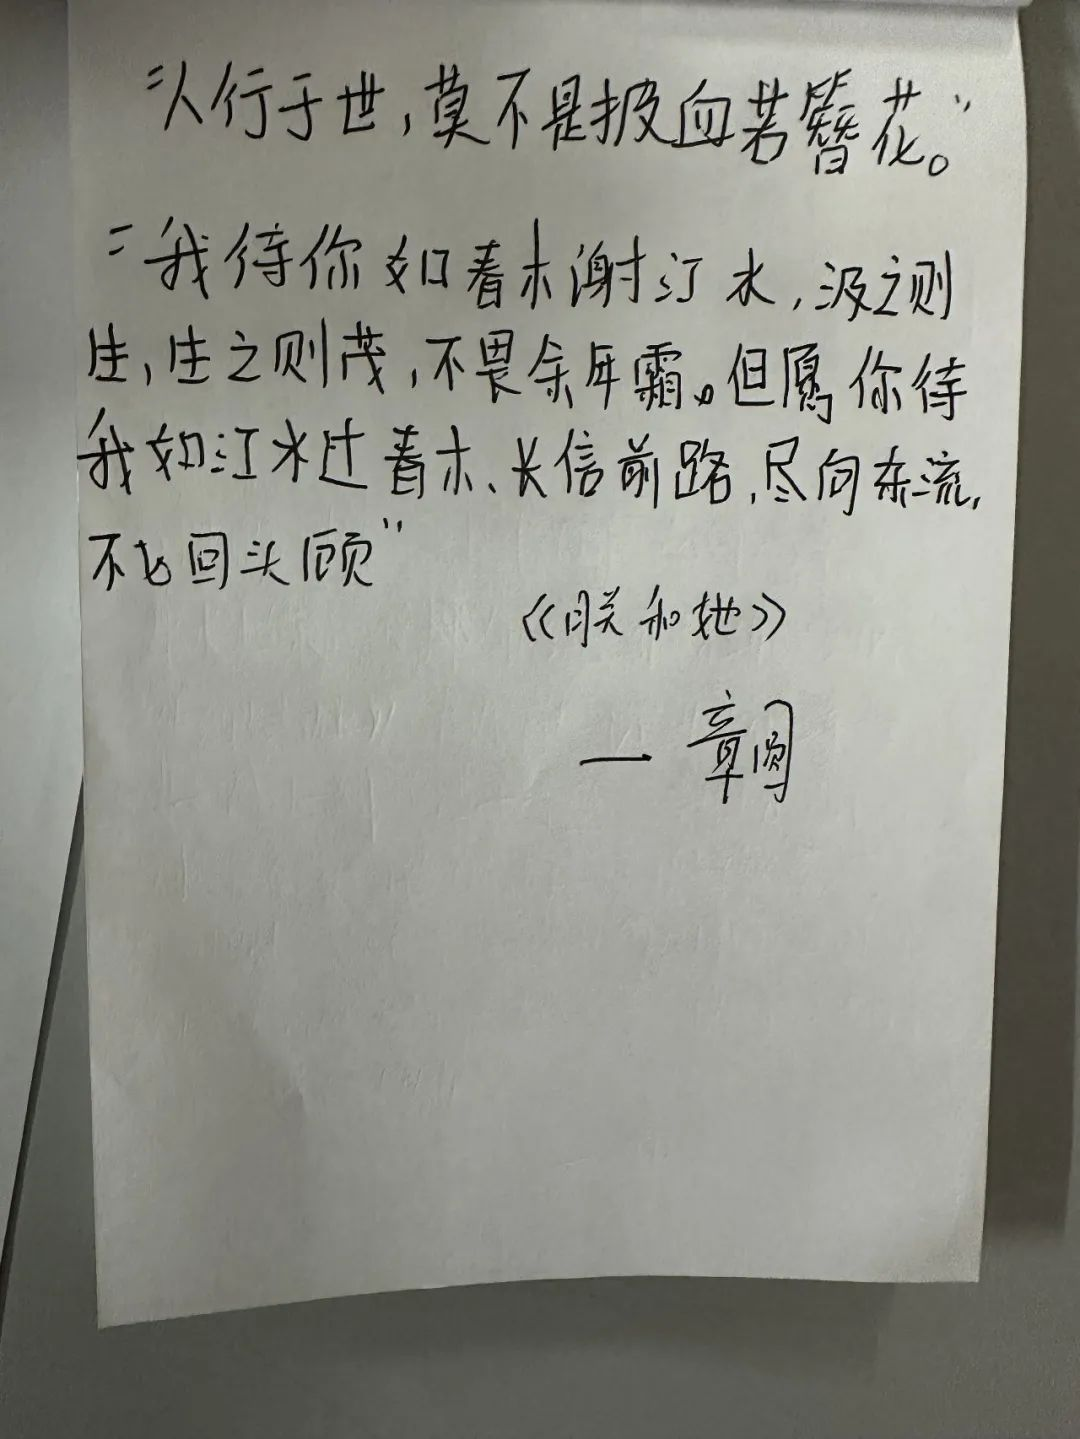 “人行于世，莫不是披血若簪花。”
“我待你如春木谢江水，汲之则
生，生之则茂，不畏余年霜。但愿你待
我如江水过春木、长信前路，尽向东流，
不必回头顾”
《朕和她》
—章圆